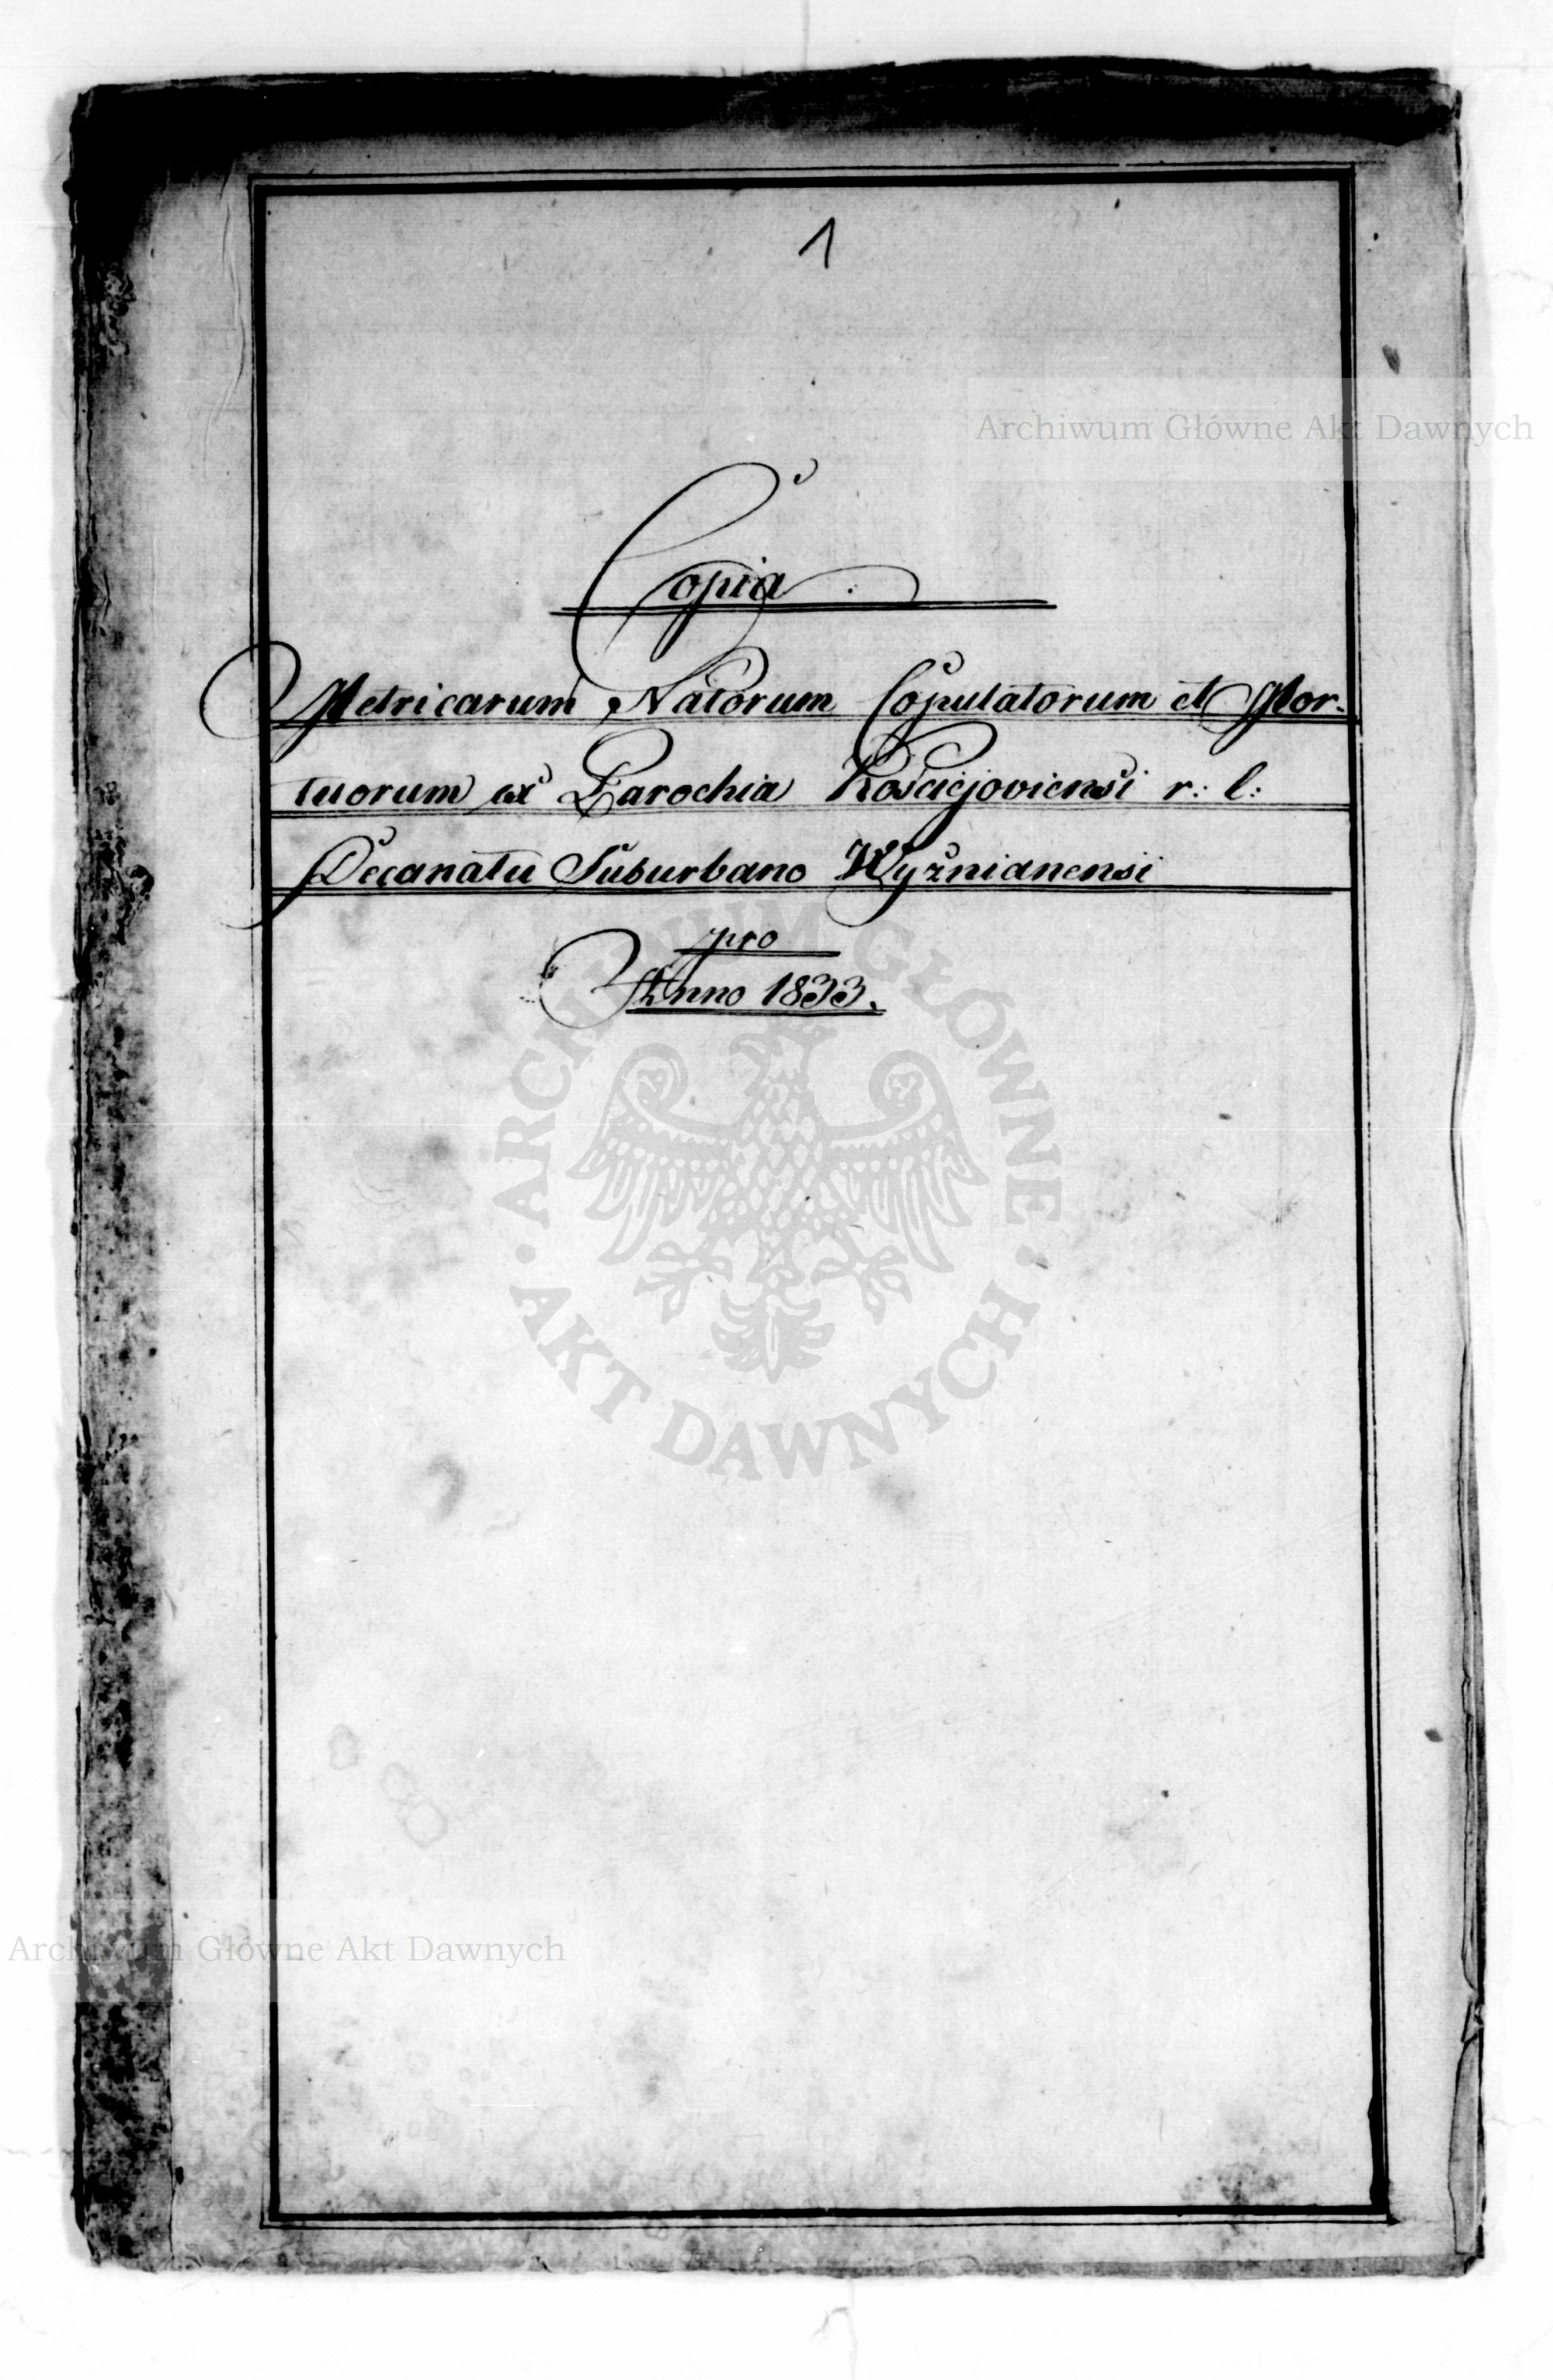 1
Archiwum Główne Akt Dawnych
Copia
Metricarum Natorum Copulatorum et Mor-
tuorum ex Parochia Kościejoviensi r: l:
Decanatu Suburbano Wyżnianensi
pro
Anno 1833.
ARCHIWUM GŁÓWNE
AKT DAWNYCH
Archiwum Główne Akt Dawnych